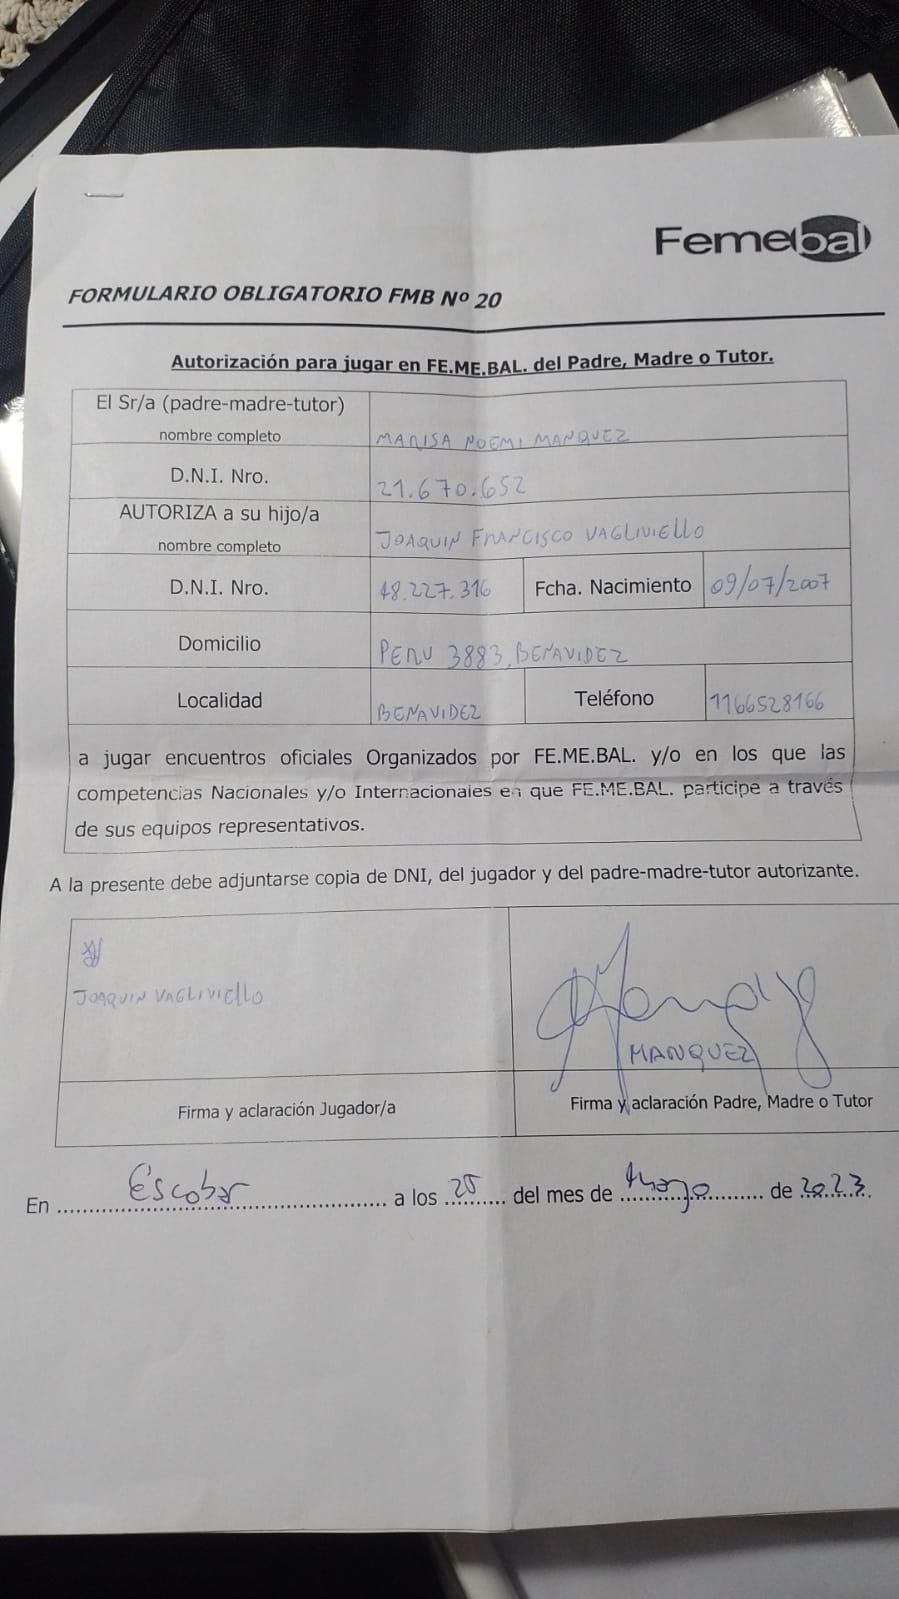 Femebal
FORMULARIO OBLIGATORIO FMB Nº 20
Autorización para jugar en FE.ME.BAL. del Padre, Madre o Tutor.
El Sr/a (padre-madre-tutor)
nombre completo
MARISA NOEMI MANQUEZ
D.N.I. Nro.
21.670.652
AUTORIZA a su hijo/a
nombre completo
JOAQUIN FRANCISCO VAGLIVIELLO
D.N.I. Nro.
48.227.316
Fcha. Nacimiento
09/07/2007
Domicilio
PERU 3883, BENAVIDEZ
Localidad
BENAVIDEZ
Teléfono
1166528166
a jugar encuentros oficiales Organizados por FE.ME.BAL. y/o en los que las
competencias Nacionales y/o Internacionales en que FE.ME.BAL. participe a través
de sus equipos representativos.
A la presente debe adjuntarse copia de DNI, del jugador y del padre-madre-tutor autorizante.
JOAQUIN VAGLIVIELLO
MANQUEZ
Firma y aclaración Jugador/a
Firma y aclaración Padre, Madre o Tutor
En Escobar a los 25 del mes de Mayo de 2023.